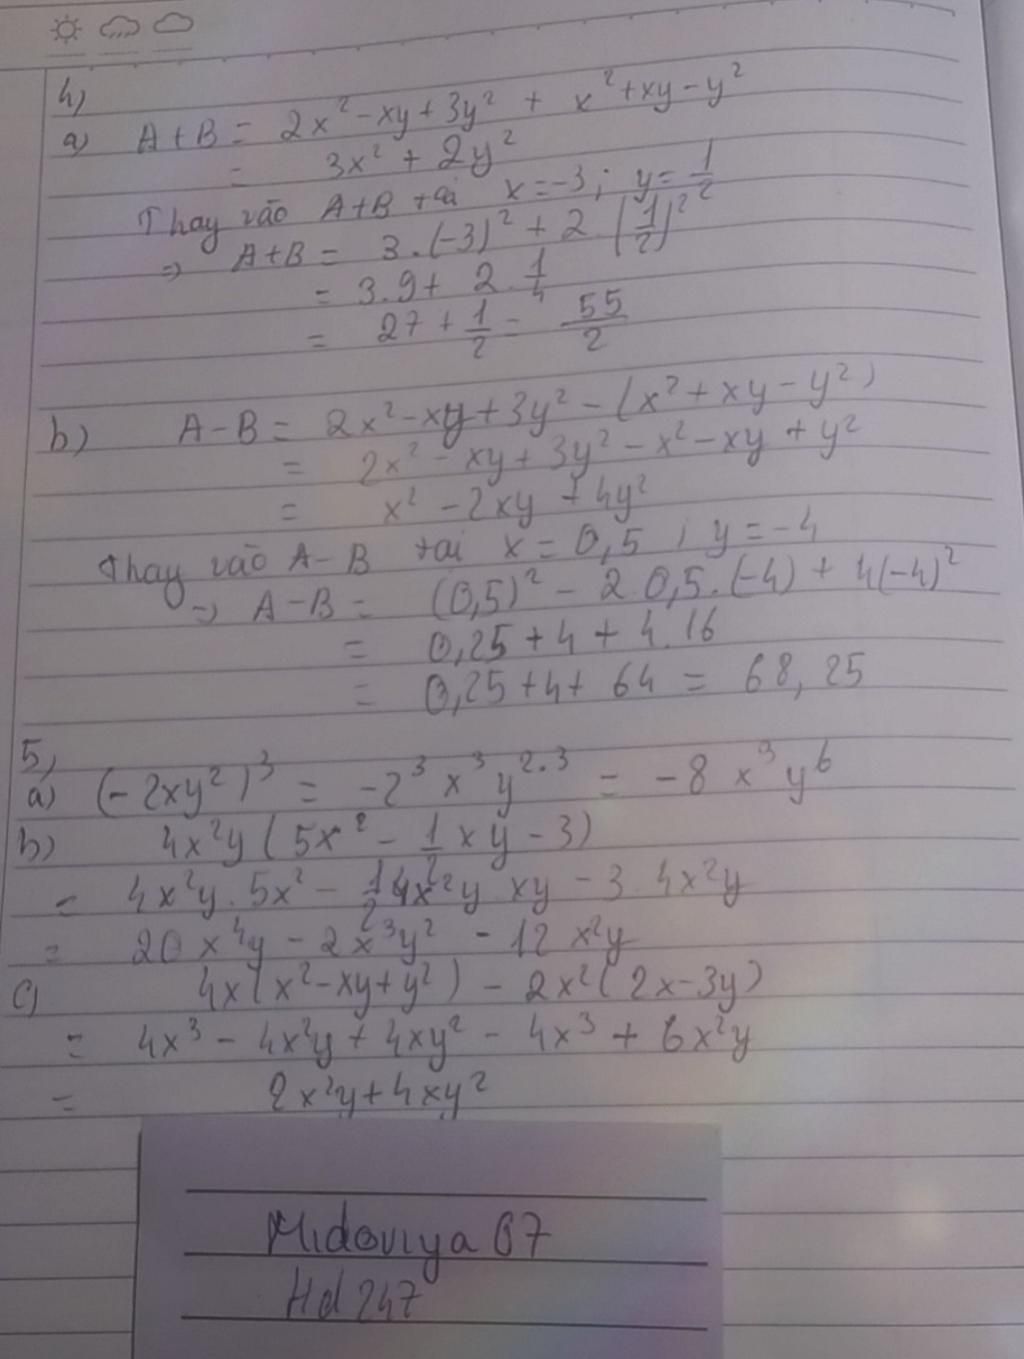 4)
a) A+B = 2x² - xy + 3y² + x² + xy - y²
= 3x² + 2y²
Thay vào A+B tại x = -3; y = 1/2
=> A+B = 3.(-3)² + 2.(1/2)²
= 3.9 + 2.1/4
= 27 + 1/2 = 55/2
b) A-B = 2x² - xy + 3y² - (x² + xy - y²)
= 2x² - xy + 3y² - x² - xy + y²
= x² - 2xy + 4y²
Thay vào A-B tại x = 0,5 ; y = -4
=> A-B = (0,5)² - 2.0,5.(-4) + 4(-4)²
= 0,25 + 4 + 4.16
= 0,25 + 4 + 64 = 68,25
5,
a) (-2xy²)³ = -2³ x³ y²·³ = -8 x³ y⁶
b) 4x²y (5x² - 1/2 xy - 3)
= 4x²y.5x² - 1/2 4x²y.xy - 3.4x²y
= 20x⁴y - 2x³y² - 12x²y
c) 4x(x² - xy + y²) - 2x²(2x - 3y)
= 4x³ - 4x²y + 4xy² - 4x³ + 6x²y
= 2x²y + 4xy²
Midoviya 07
Hd 247